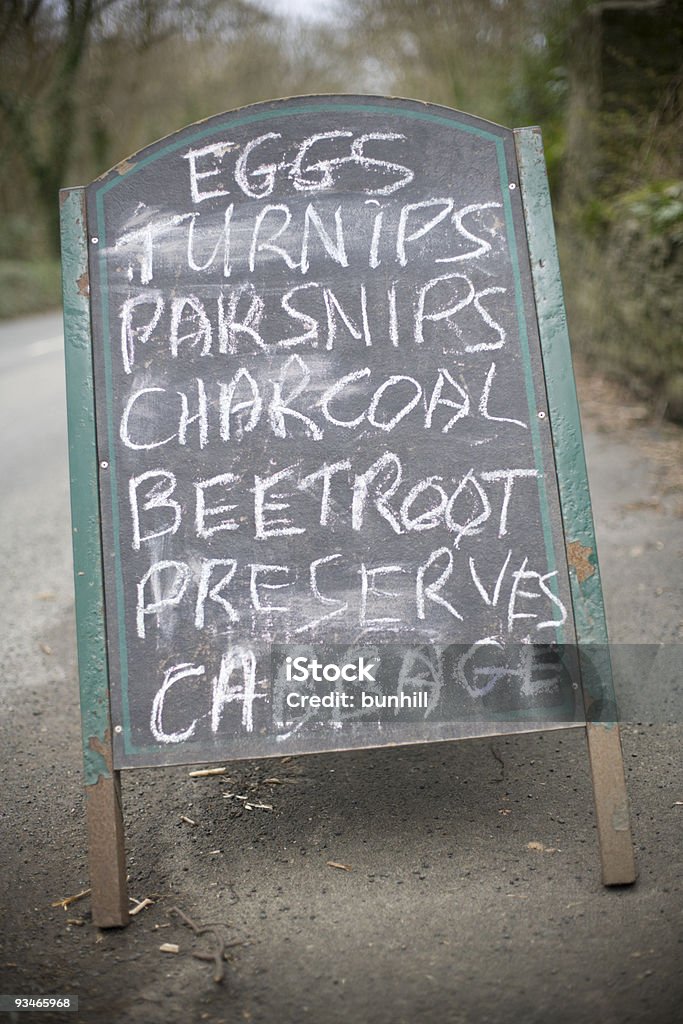 EGGS
TURNIPS
PARSNIPS
CHARCOAL
BEETROOT
PRESERVES
CABBAGE
iStock
Credit: bunhill
93465968